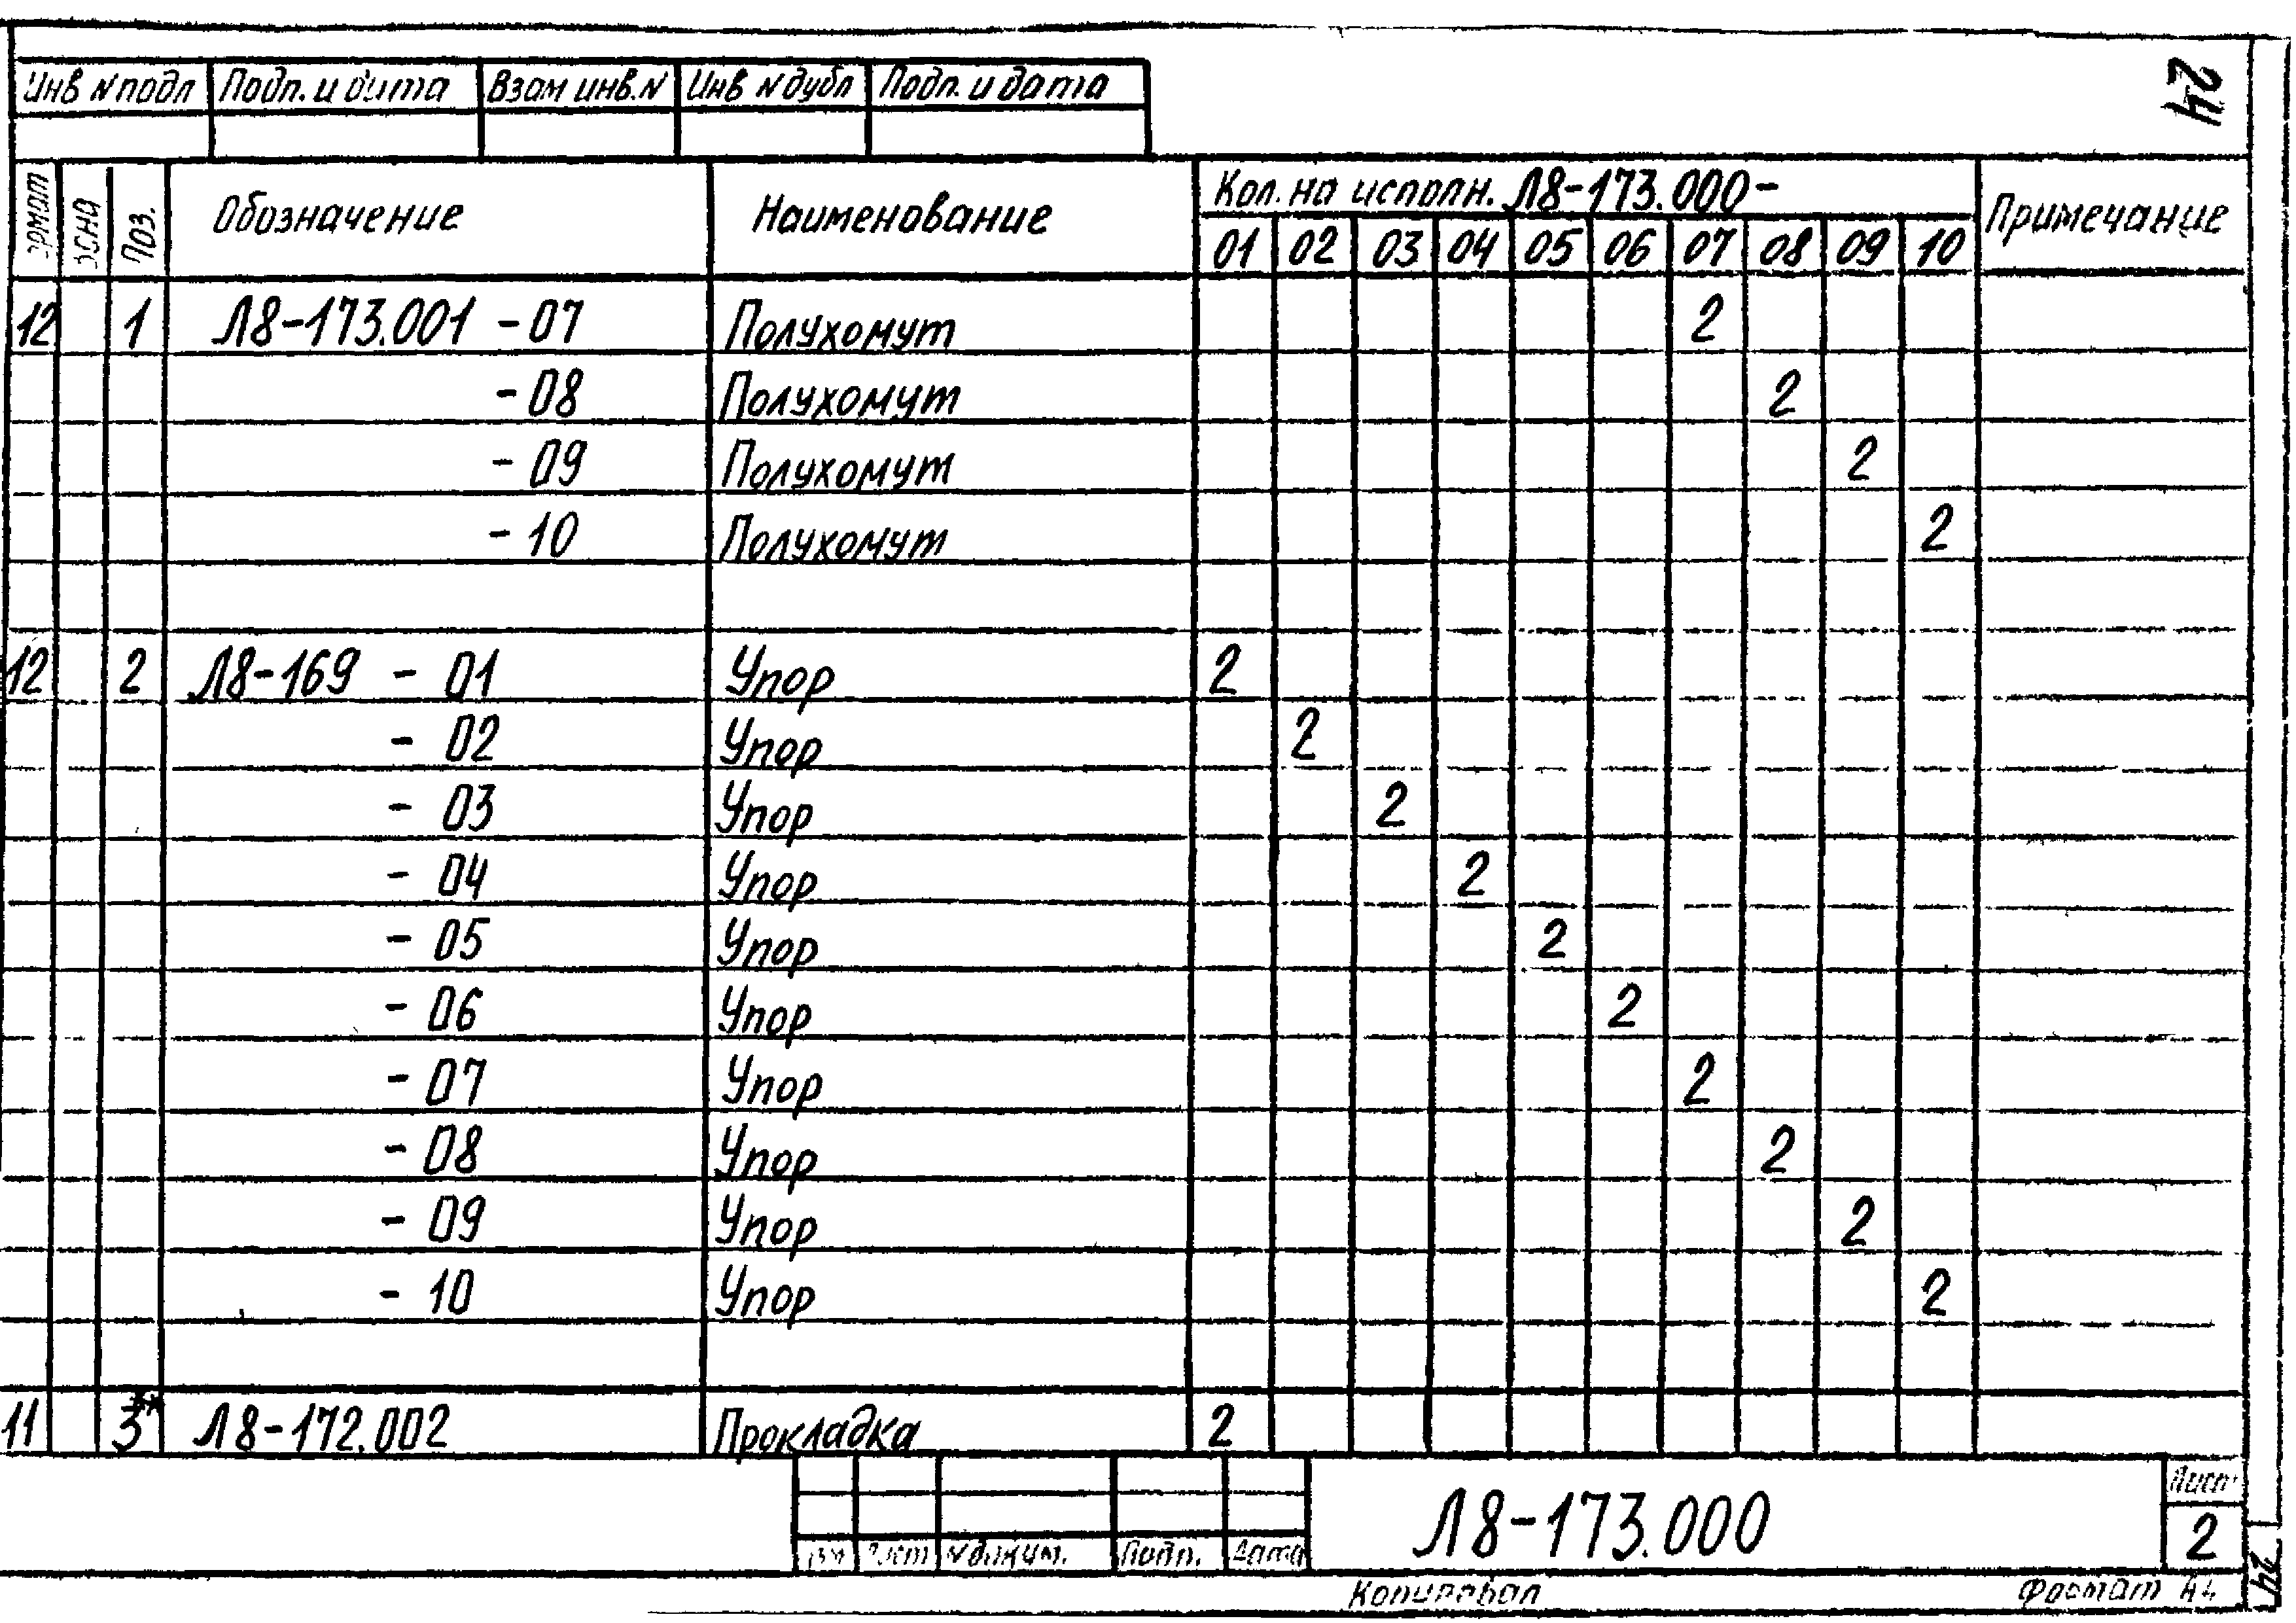 24
Инв N подл Подп. и дата Взам инв.N Инв N дубл Подп. и дата
Поз. Обозначение Наименование Кол. на исполн. Л8-173.000- Примечание
01 02 03 04 05 06 07 08 09 10
12 1 Л8-173.001 -07 Полухомут 2
-08 Полухомут 2
-09 Полухомут 2
-10 Полухомут 2
12 2 Л8-169 - 01 Упор 2
- 02 Упор 2
- 03 Упор 2
- 04 Упор 2
- 05 Упор 2
- 06 Упор 2
- 07 Упор 2
- 08 Упор 2
- 09 Упор 2
- 10 Упор 2
11 3** Л8-172.002 Прокладка 2
Л8-173.000 Лист
2
N докум. Подп. Дата
Копировал Формат А4
24